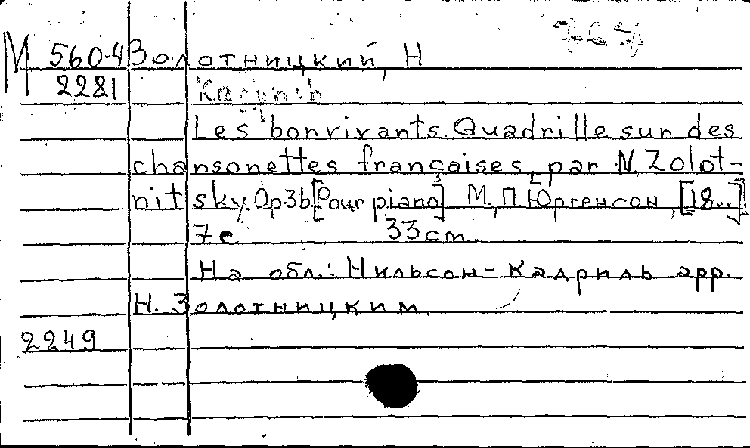 М 560-4 Золотницкий, Н
2281
Les bonvivants. Quadrille sur des
chansonettes françaises, par N. Zolot-
nitsky. Op 36 [Pour piano] М., П. Юргенсон, [18..]
7 с. 33 cm.
На обл.: Нильсон-кадриль арр.
Н. Золотницким.
2249